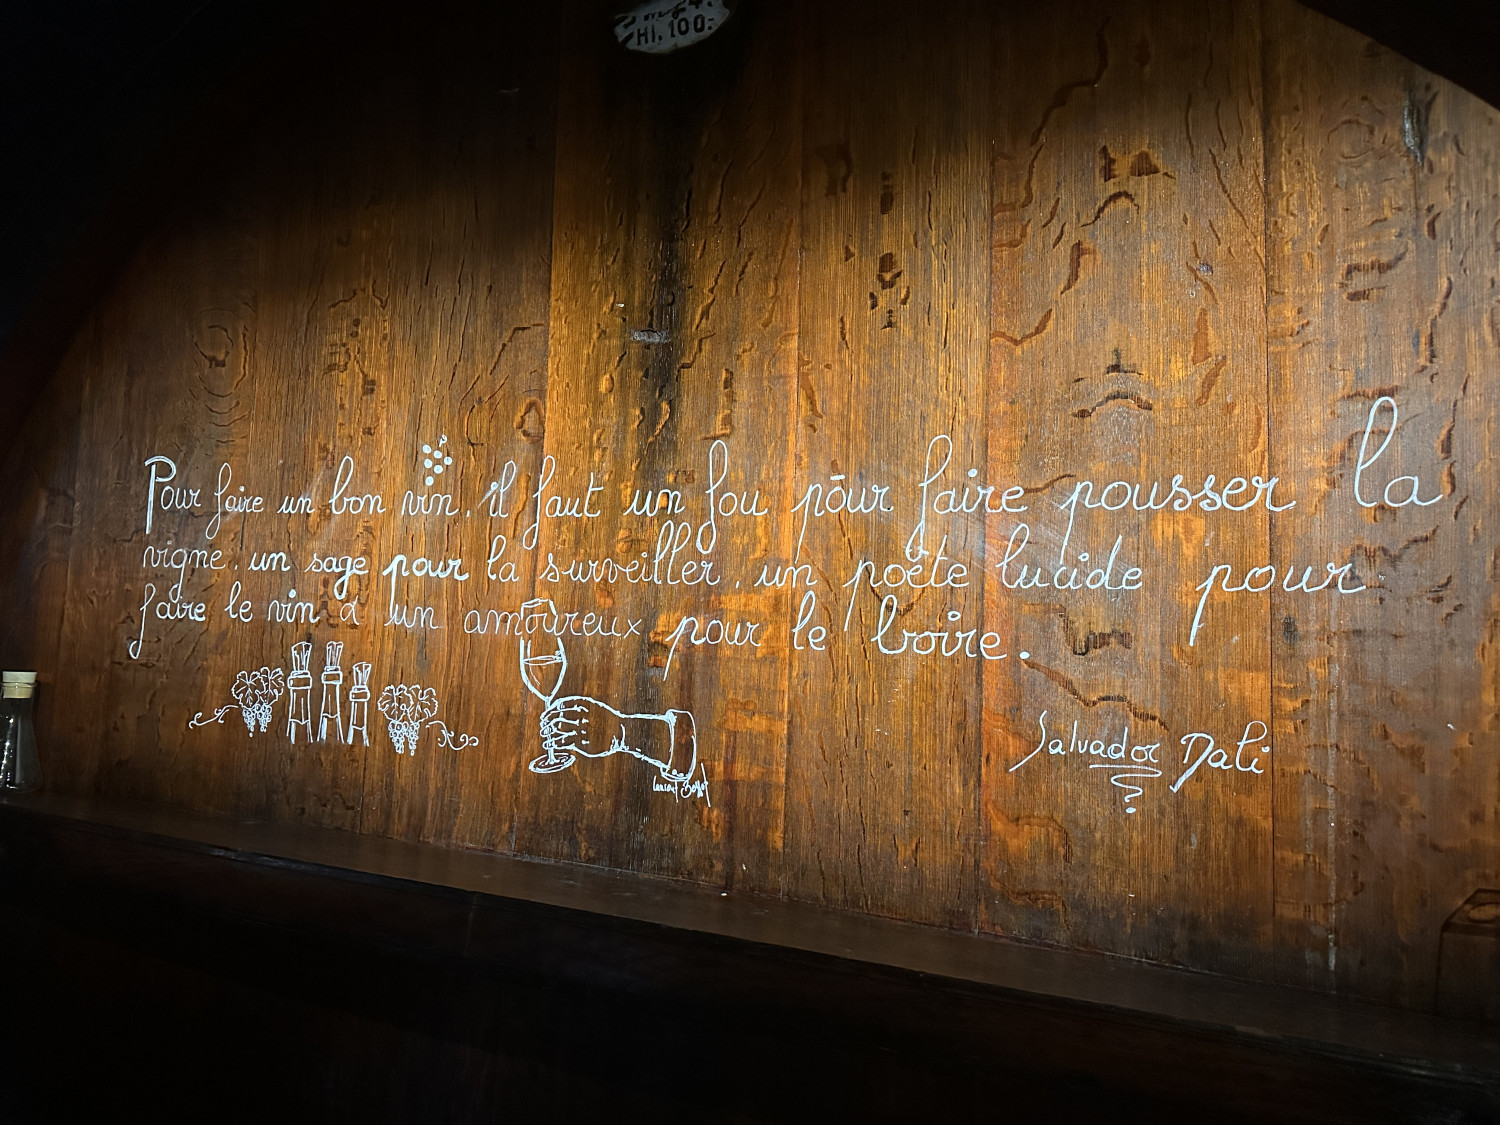 HI. 100.
Pour faire un bon vin, il faut un fou pour faire pousser la
vigne, un sage pour la surveiller, un poète lucide pour
faire le vin & un amoureux pour le boire.
Salvador Dali